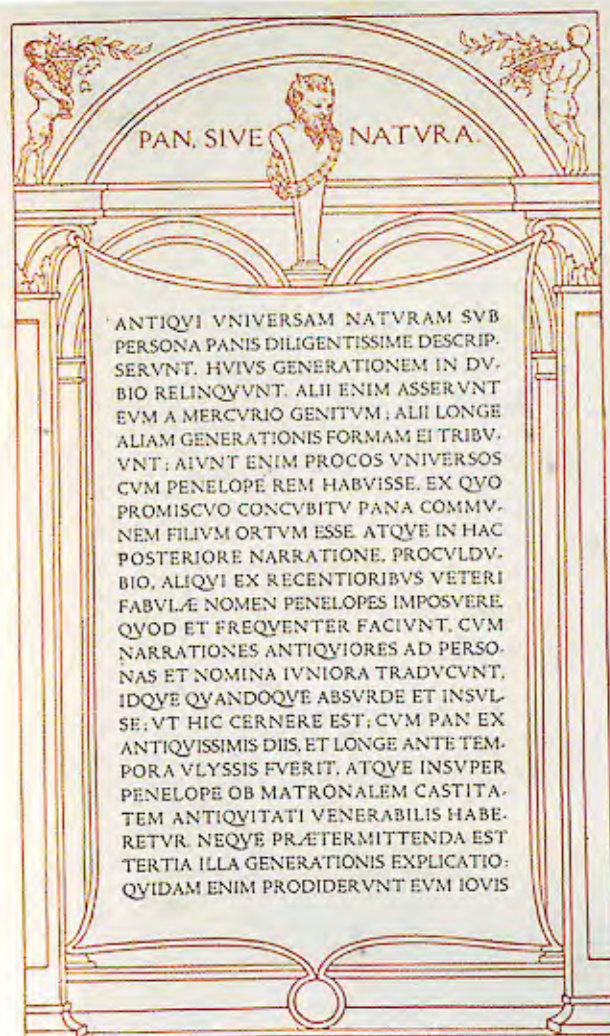 PAN, SIVE NATVRA.
ANTIQVI VNIVERSAM NATVRAM SVB
PERSONA PANIS DILIGENTISSIME DESCRIP-
SERVNT. HVIVS GENERATIONEM IN DV-
BIO RELINQVVNT. ALII ENIM ASSERVNT
EVM A MERCVRIO GENITVM; ALII LONGE
ALIAM GENERATIONIS FORMAM EI TRIBV-
VNT; AIVNT ENIM PROCOS VNIVERSOS
CVM PENELOPE REM HABVISSE, EX QVO
PROMISCVO CONCVBITV PANA COMMV-
NEM FILIVM ORTVM ESSE. ATQVE IN HAC
POSTERIORE NARRATIONE, PROCVLDV-
BIO, ALIQVI EX RECENTIORIBVS VETERI
FABVLÆ NOMEN PENELOPES IMPOSVERE,
QVOD ET FREQVENTER FACIVNT, CVM
NARRATIONES ANTIQVIORES AD PERSO-
NAS ET NOMINA IVNIORA TRADVCVNT,
IDQVE QVANDOQVE ABSVRDE ET INSVL-
SE; VT HIC CERNERE EST; CVM PAN EX
ANTIQVISSIMIS DIIS, ET LONGE ANTE TEM-
PORA VLYSSIS FVERIT, ATQVE INSVPER
PENELOPE OB MATRONALEM CASTITA-
TEM ANTIQVITATI VENERABILIS HABE-
RETVR. NEQVE PRÆTERMITTENDA EST
TERTIA ILLA GENERATIONIS EXPLICATIO:
QVIDAM ENIM PRODIDERVNT EVM IOVIS